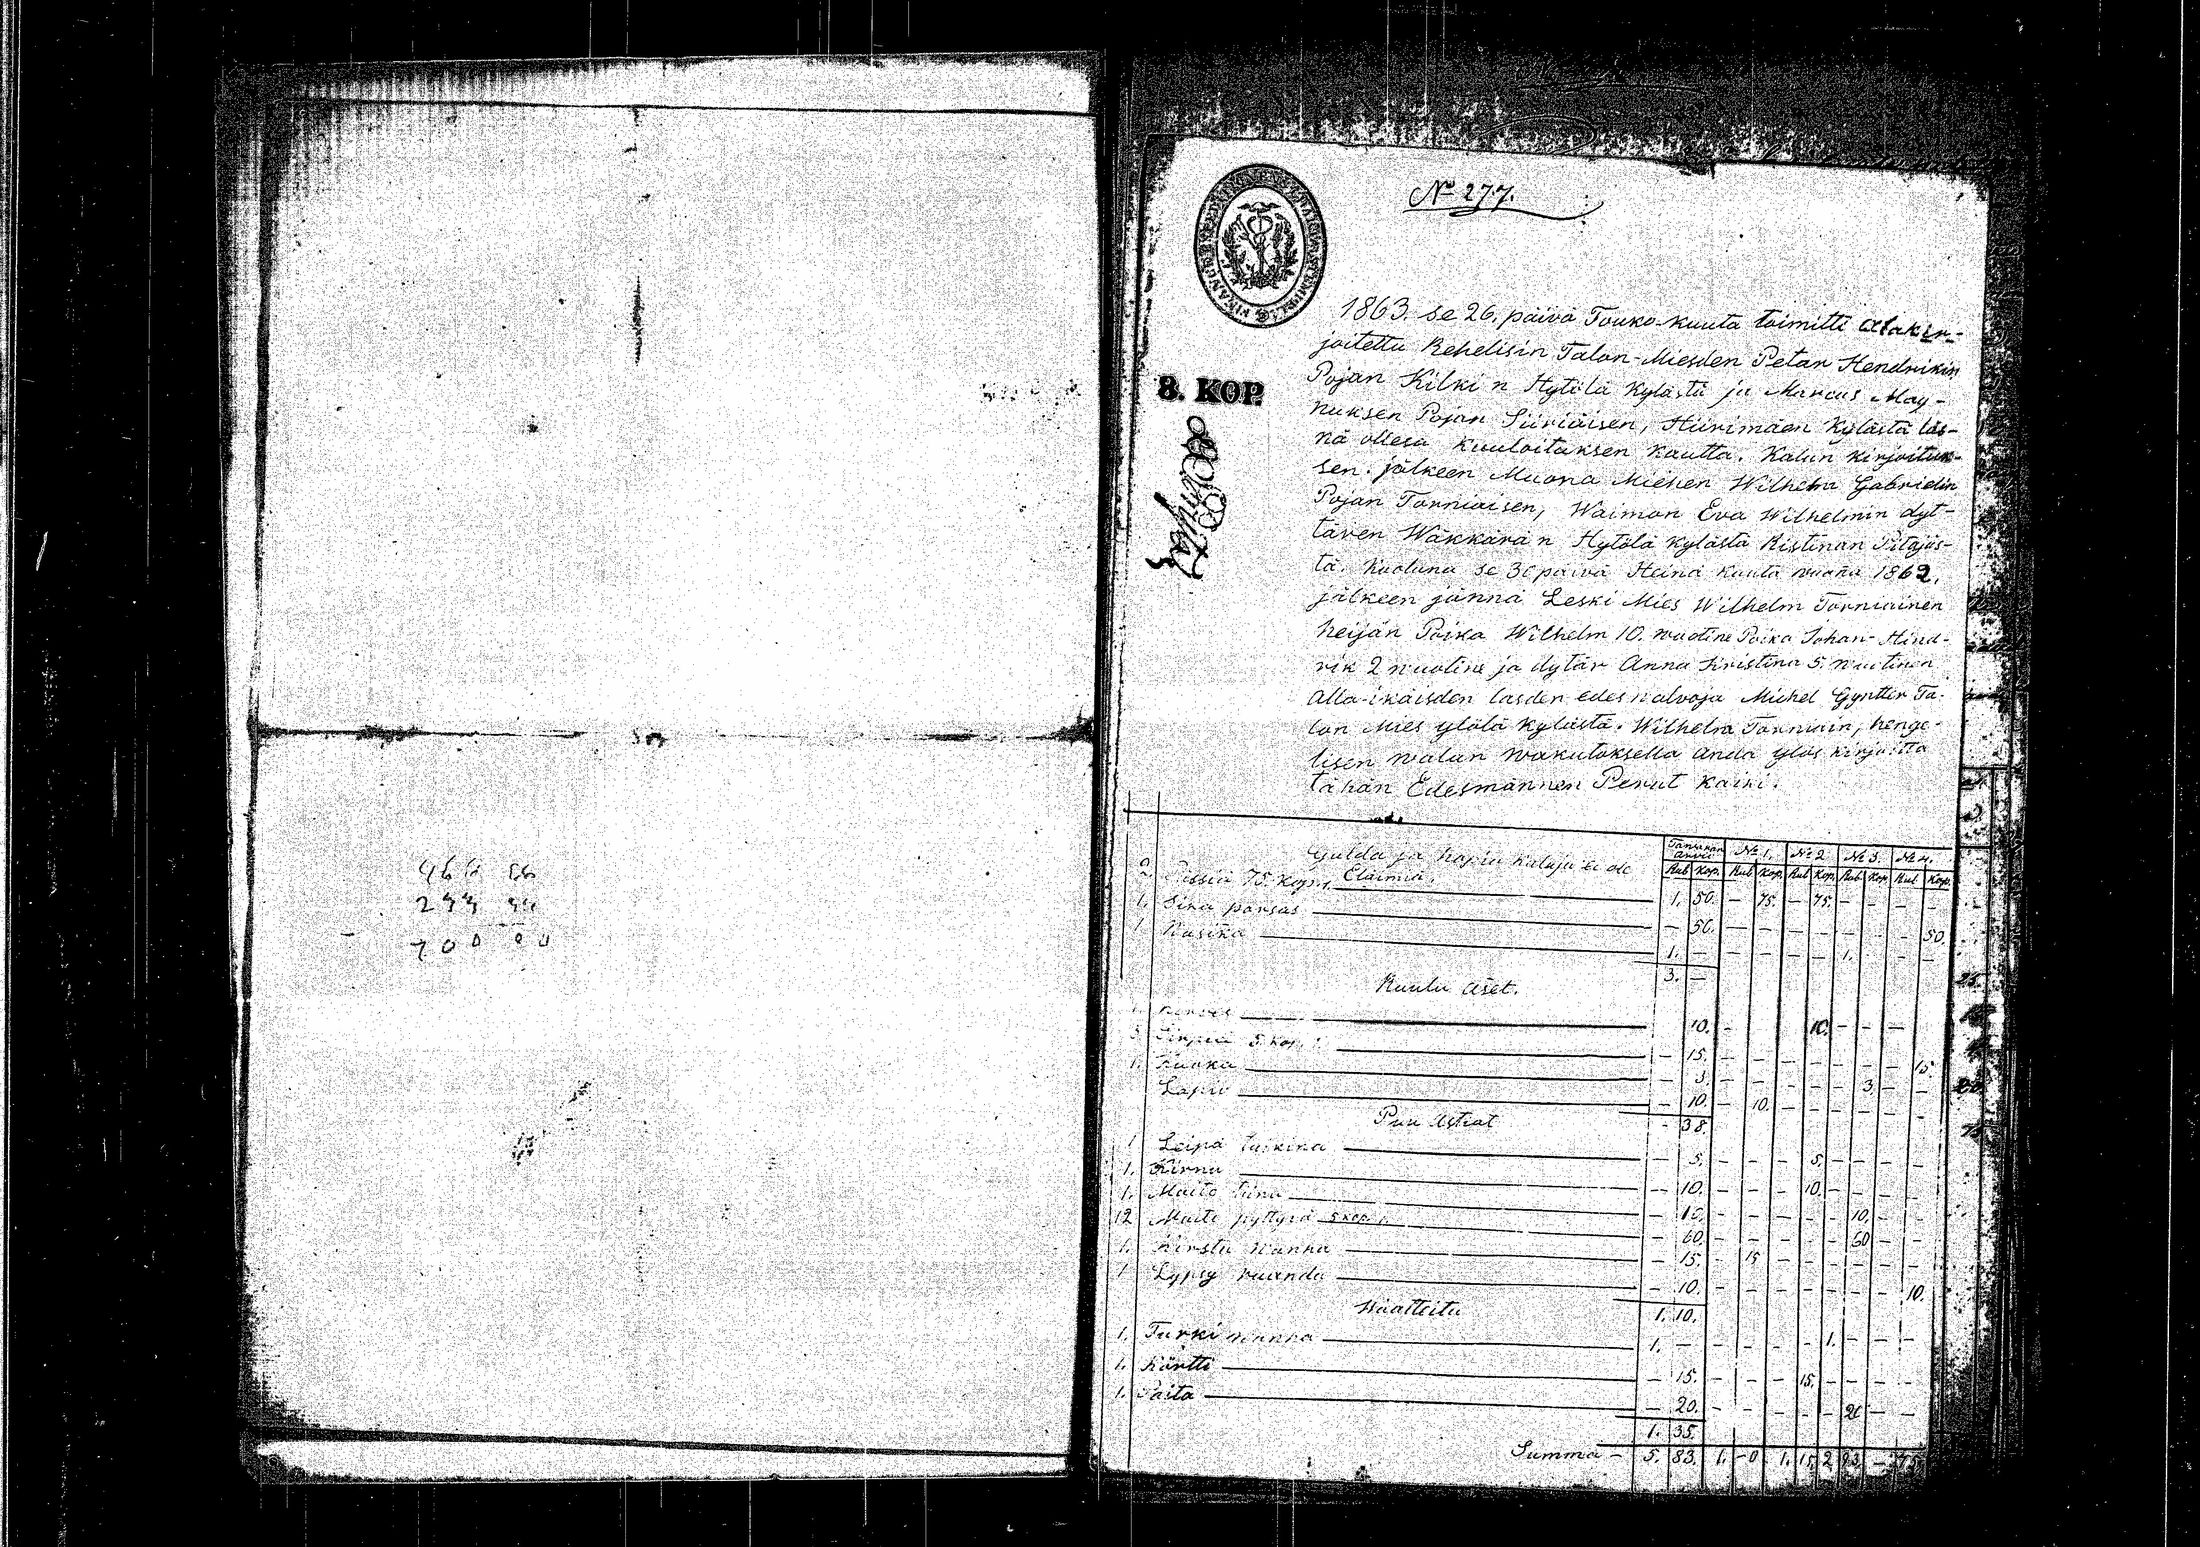 466 66
233 34
700 00
No 277.
8. KOP.
1863. se 26. päivä Touko-kuuta toimitti allakir-
joitettu Rehelisin Talon-Miesden Petar Hendrikin
Pojan Kilki n Hytölä Kylästä ja Marcus Mag-
nuksen Pojan Siiriäisen, Hiirimäen Kylästä läs-
nä ollesa kuuloituksen kautta. Kalun kirjoituk-
sen. jälkeen Muona Miehen Wilhelm Gabrielin
Pojan Torniaisen, Waimon Eva Wilhelmin dyt-
tären Wäkkärä n Hytölä kylästä Ristinan Pitäjäs-
tä. kuoluna se 30 päivä Heinä kuuta wuona 1862.
jälkeen jännä Leski Mies Wilhelm Torniainen
heijän Poika Wilhelm 10. wuotine Poika Johan-Hind-
rik 2 wuotine ja dytär Anna Kristina 5. wuotinen
Alla-ikäisden lasden edesnalvoja Michel Gyntter Ta-
lon Mies ylölä kylästä. Wilhelm Torniain, henge-
lisen walan wakutoksella anda ylös kirjoitta
tähän Edesmännen Perut kaiki.
Gulda ja hopia kaluja ei ole
Eläimiä.
No 1. No 2 No 3. No 4.
Rub Kop. Rub Kop. Rub Kop. Rub Kop Rub Kop.
2. Pässiä 75. kop. 1. 50. – 75. – 75. – – – –
1. Sika porsas – 50. – – – – – – – 50.
1 1. – – – – – 1. – – –
3. –
Kuulu aset.
1. kirves 10. – 10. – – –
3 Sirpiä 5. kop. – 15. – – – – – – 15.
1. – 3. – – – – – 3. – –
Lapio – 10. – 10. – – – – – –
– 38.
Puu Astiat
1 Leipä – 5. – – – 5. – – – –
1. Kirnu – 10. – – – 10. – – – –
1. Maito – 10. – – – – – 10. – –
12 Maito pyttyiä 5 kop. – 60. – – – – – 60 – –
1. Kirstu wanha – 15. – 15 – – – – – –
1 Lypsy – 10. – – – – – – – 10.
1. 10.
Waatteita
1. Turki wanha 1. – – – – – 1. – – –
1. Körtti – 15. – – – 15. – – – –
1. Paita – 20. – – – – – 20 – –
1. 35.
Summa – 5. 83. 1. – 0 1. 15. 2 93. – 75